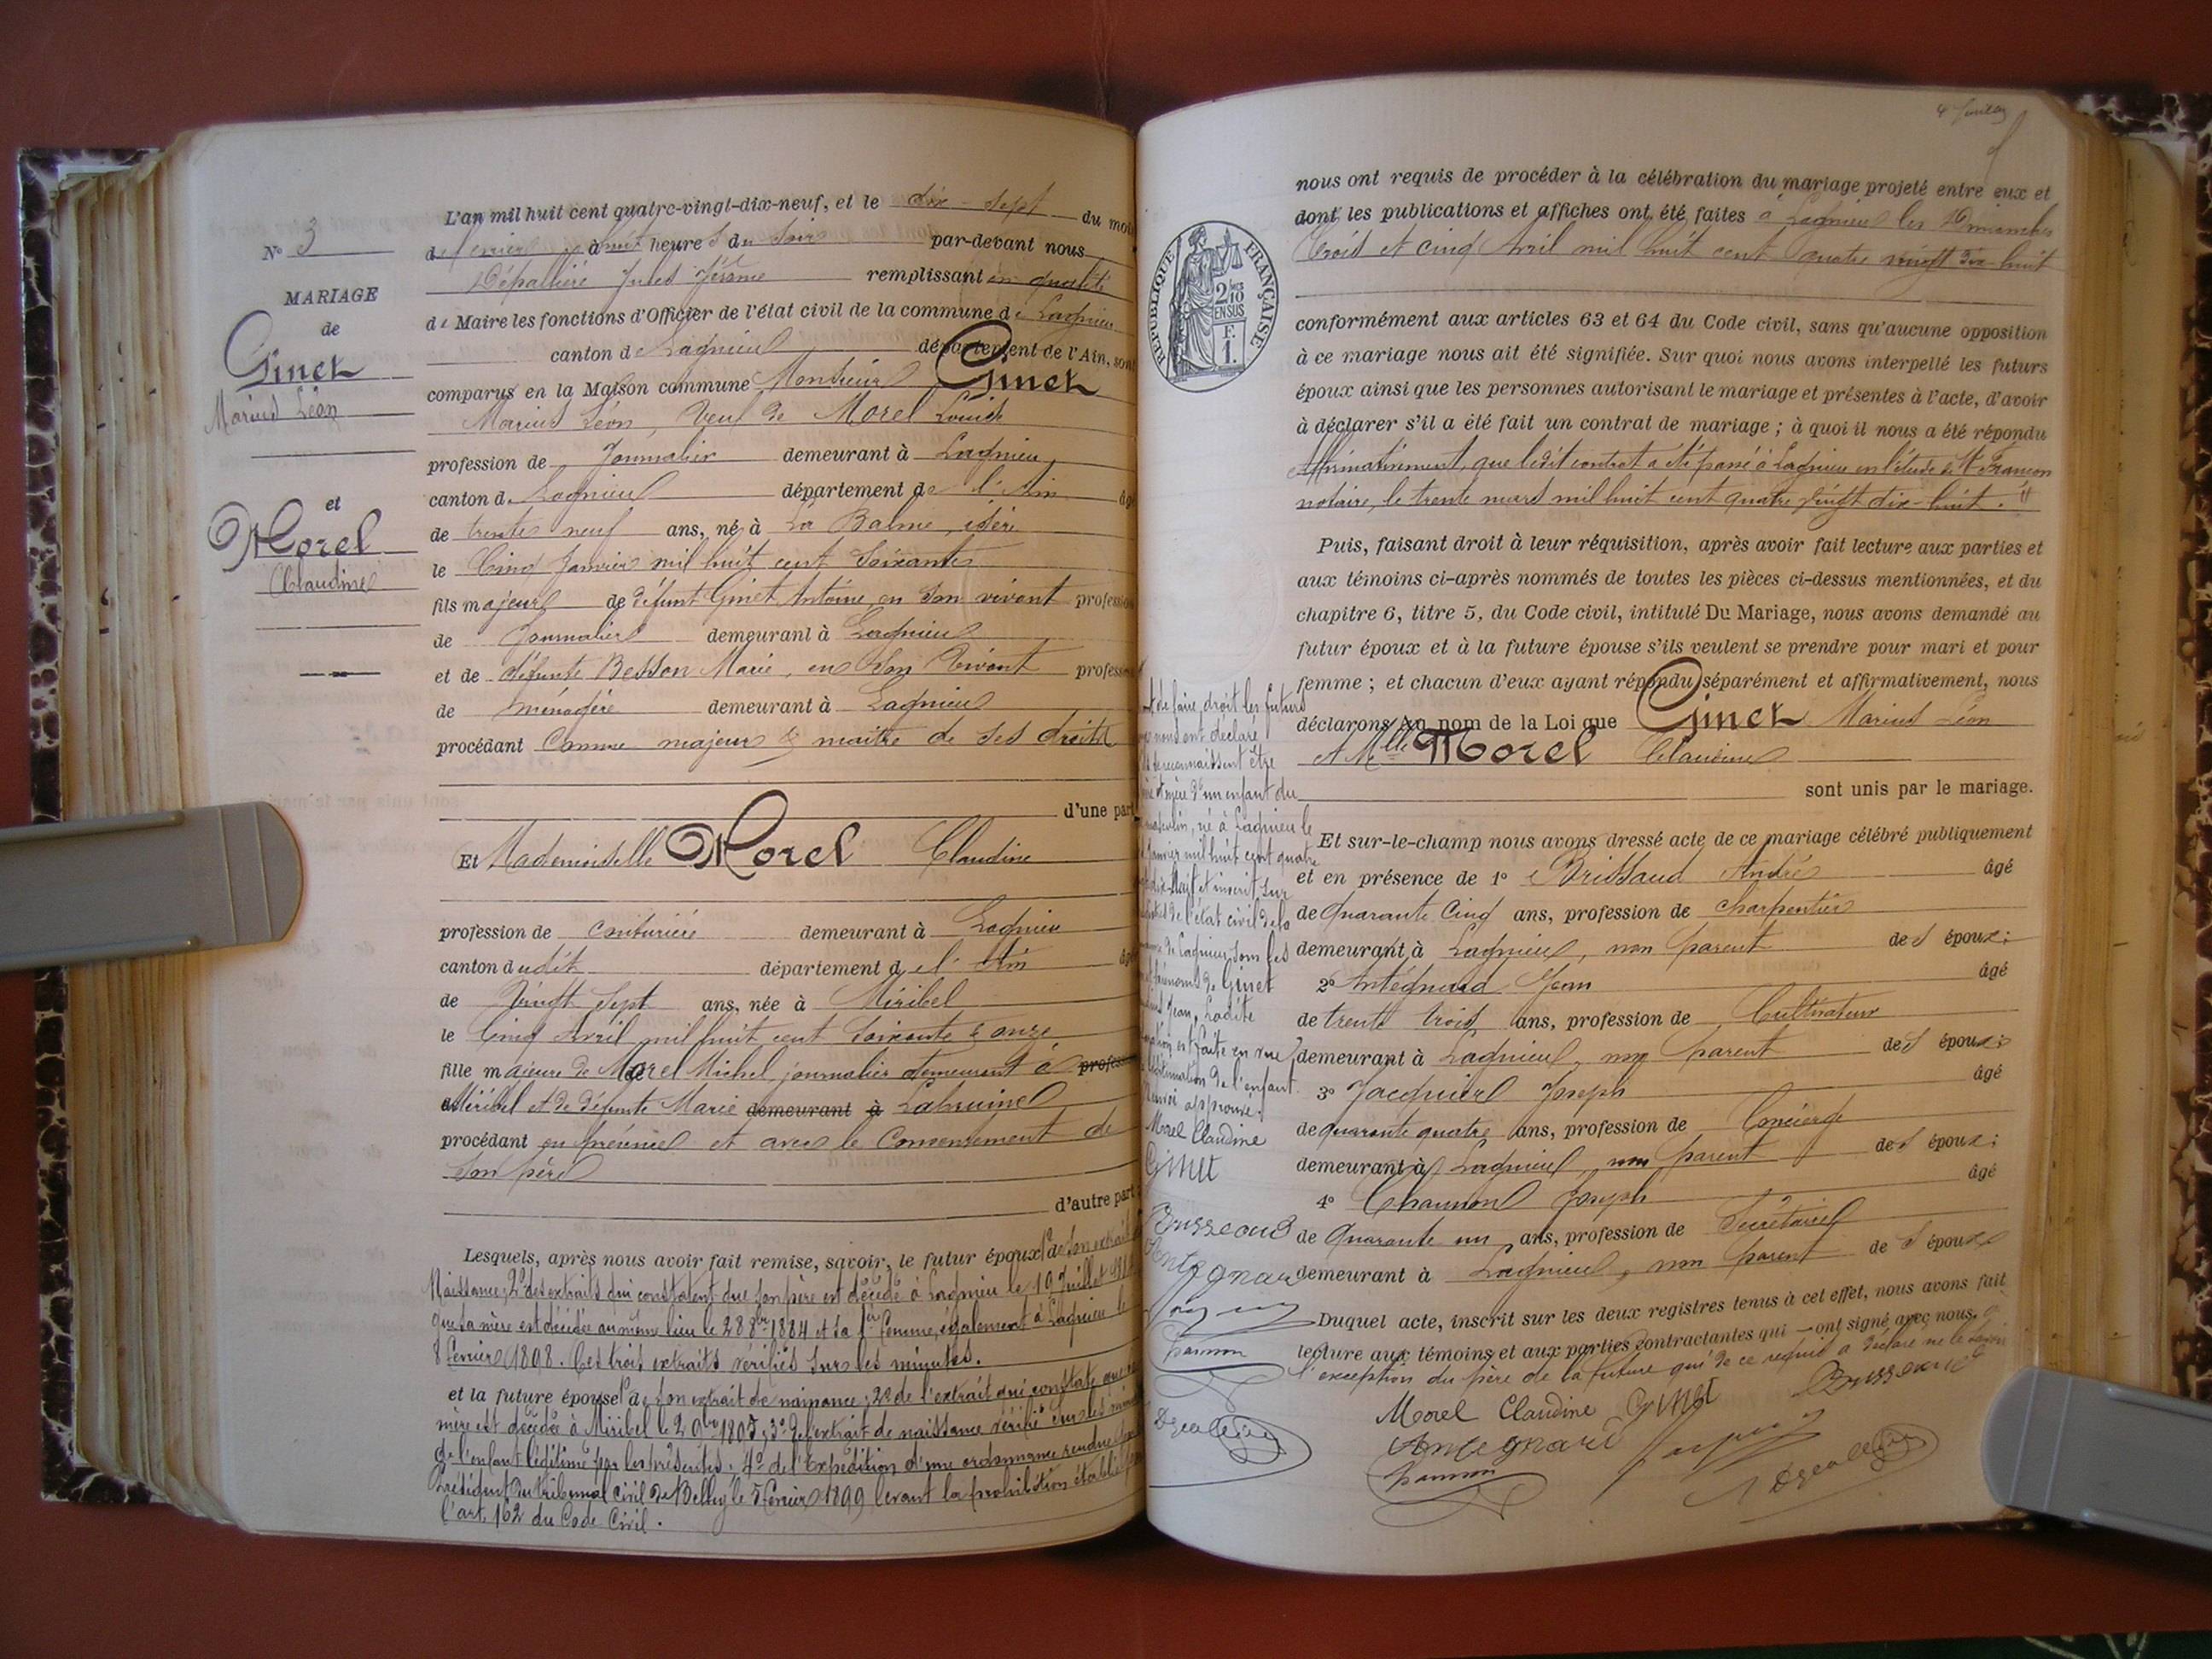 N° 3
MARIAGE
de
Ginet
Marius Léon
et
Morel
Claudine
L'an mil huit cent quatre-vingt-dix-neuf, et le dix-sept du mois
de février à huit heures du soir par-devant nous
Dépallière Jules Jérôme remplissant en qualité
de Maire les fonctions d'Officier de l'état civil de la commune de Lagnieu
canton de Lagnieu département de l'Ain, sont
comparus en la Maison commune Monsieur Ginet
Marius Léon, Veuf de Morel Louise
profession de Journalier demeurant à Lagnieu
canton de Lagnieu département de l'Ain âgé
de trente neuf ans, né à La Balme, isère
le Cinq Janvier mil huit cent Soixante
fils majeur de défunt Ginet Antoine, en son vivant profession
de Journalier demeurant à Lagnieu
et de défunte Besson Marie, en son vivant profession
de ménagère demeurant à Lagnieu
procédant Comme majeur & maitre de ses droits
d'une part
Et Mademoiselle Morel Claudine
profession de couturière demeurant à Lagnieu
canton dudit département de l'Ain âgée
de Vingt Sept ans, née à Miribel
le Cinq Avril mil huit cent Soixante & onze
fille majeure de Morel Michel journalier demeurant à profession
Miribel et de défunte Marie demeurant à Labruine
procédant en première et avec le Consentement de
Son père
d'autre part
Lesquels, après nous avoir fait remise, savoir, le futur époux 1° de son extrait
Naissance; 2° des extraits qui constatent que son père est décédé à Lagnieu le 19 Juillet
que sa mère est décédée au même lieu le 28 8bre 1884 et sa 1ère femme, également à Lagnieu le
8 février 1898. Ces trois extraits vérifiés sur les minutes.
et la future épouse 1° de son extrait de naissance; 2° de l'extrait qui constate que sa
mère est décédée à Miribel le 2 9bre 1895; 3° de l'extrait de naissance vérifié sur les minutes
de l'enfant légitimé par les présentes. 4° de l'Expédition d'une ordonnance rendue par
Président du tribunal civil de Belley le 5 février 1899 levant la prohibition établie par
l'art. 162 du Code Civil.
nous ont requis de procéder à la célébration du mariage projeté entre eux et
dont les publications et affiches ont été faites à Lagnieu les Dimanches
Trois et cinq Avril mil huit cent quatre vingt dix huit
RÉPUBLIQUE FRANÇAISE
2/10 EN SUS
F. 1.
conformément aux articles 63 et 64 du Code civil, sans qu'aucune opposition
à ce mariage nous ait été signifiée. Sur quoi nous avons interpellé les futurs
époux ainsi que les personnes autorisant le mariage et présentes à l'acte, d'avoir
à déclarer s'il a été fait un contrat de mariage ; à quoi il nous a été répondu
Affirmativement, que ledit contrat a été passé à Lagnieu en l'étude de Me Françon
notaire, le trente mars mil huit cent quatre vingt dix-huit.
Puis, faisant droit à leur réquisition, après avoir fait lecture aux parties et
aux témoins ci-après nommés de toutes les pièces ci-dessus mentionnées, et du
chapitre 6, titre 5, du Code civil, intitulé Du Mariage, nous avons demandé au
futur époux et à la future épouse s'ils veulent se prendre pour mari et pour
femme ; et chacun d'eux ayant répondu séparément et affirmativement, nous
déclarons au nom de la Loi que Ginet Marius Léon
et Mlle Morel Claudine
sont unis par le mariage.
Et sur-le-champ nous avons dressé acte de ce mariage célébré publiquement
et en présence de 1° Brissaud André âgé
de Quarante Cinq ans, profession de charpentier
demeurant à Lagnieu, non parent des époux;
2° Antégnard Jean âgé
de trente trois ans, profession de Cultivateur
demeurant à Lagnieu, non parent des époux;
3° Jacquier Joseph âgé
de quarante quatre ans, profession de Concierge
demeurant à Lagnieu, non parent des époux;
4° Chaumon Joseph âgé
de Quarante un ans, profession de Secrétaire
demeurant à Lagnieu, non parent des époux
Duquel acte, inscrit sur les deux registres tenus à cet effet, nous avons fait
lecture aux témoins et aux parties contractantes qui ont signé avec nous, à
l'exception du père de la future qui de ce requis a déclaré ne le savoir
Morel Claudine Ginet
Antegnard
de faire droit les futurs
nous ont déclaré
reconnaissent être
et mère d'un enfant du
masculin, né à Lagnieu le
janvier mil huit cent quatre
dix-huit et inscrit sur
de l'état civil de la
de Lagnieu, sous les
prénoms de Ginet
Jean. Ladite
est faite en vue
légitimation de l'enfant.
Renvoi approuvé.
Morel Claudine
Ginet